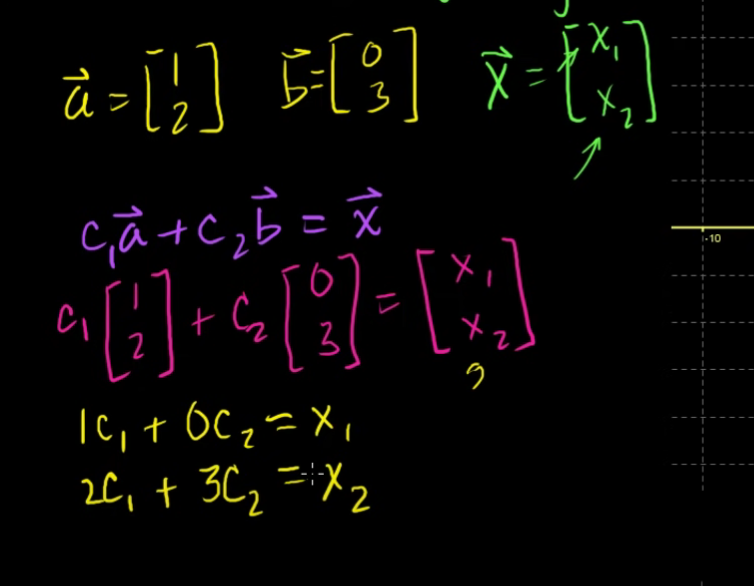 a⃗ = [1 2] b⃗ = [0 3] x⃗ = [x₁ x₂]
c₁a⃗ + c₂b⃗ = x⃗
c₁[1 2] + c₂[0 3] = [x₁ x₂]
1c₁ + 0c₂ = x₁
2c₁ + 3c₂ = x₂
-10